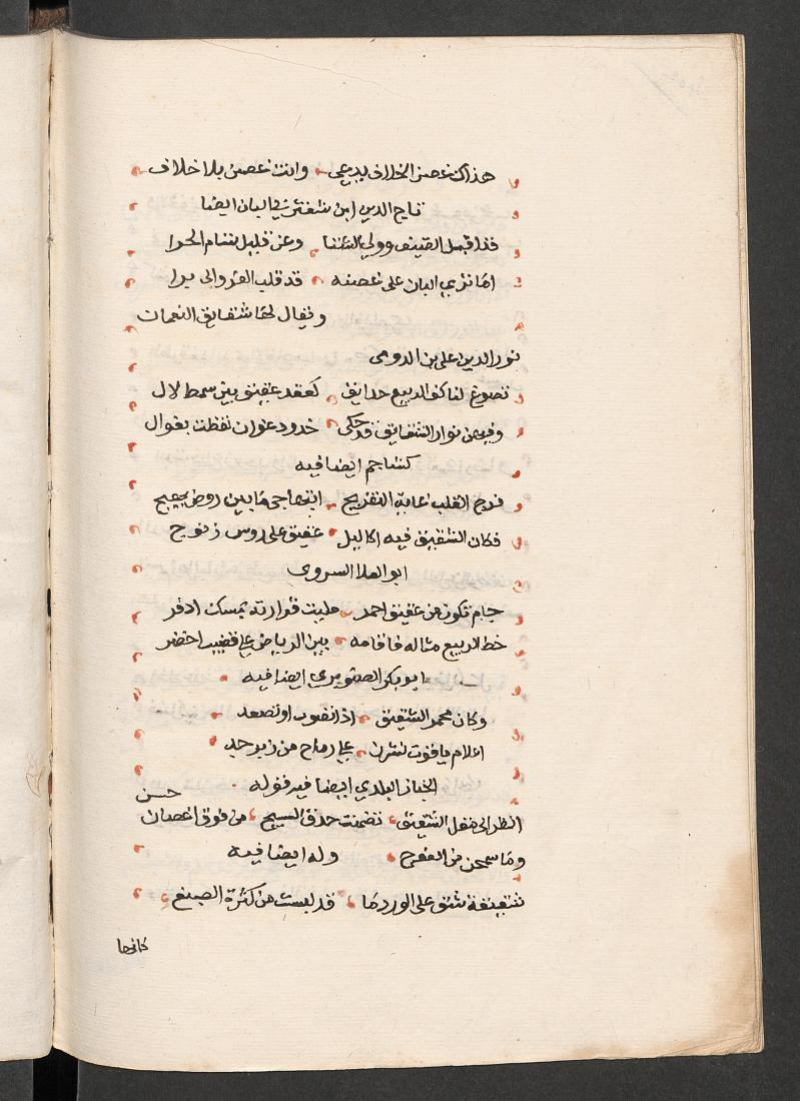 هذاك غصن الخلاف يدعى وانت غصن بلا خلاف
تاج الدين ابن شقير في البان ايضا
قد اقبل الصيف وولى الشتا وعن قليل نشام الحرا
اما ترى البان على غصنه قد قلب الفرو الى برا
ويقال لها شقايق النعمان
نور الدين على بن الدومى
تصوغ لنا كف الربيع حدايق كعقد عقيق بين سمط لال
وفيهن نوار الشقايق قد حكى خدود عوان نقطت بغوال
كشاجم ايضا فيه
فرج القلب غاية التفريح ابتهاجى ما بين روض يهيج
فكان الشقيق فيه اكاليل عقيق على روس زنوج
ابو العلا السروى
جام تكون من عقيق احمر مليت قرارته بمسك اذفر
خط الربيع مثاله فاقامه بين الرياض على قضيب اخضر
ابو بكر الصنوبري ايضا فيه
وكان محمر الشقيق اذا تصوب او تصعد
اعلام ياقوت نشرن على رماح من زبرجد
الخباز البلدي ايضا فيه قوله
انظر الى مقل الشقيق تضمنت حدق السبج من فوق اغصان حسن
وما سمجن من العوج وله ايضا فيه
شقيقة شق على الورد ما قد لبست من كثرة الصبغ
كانها